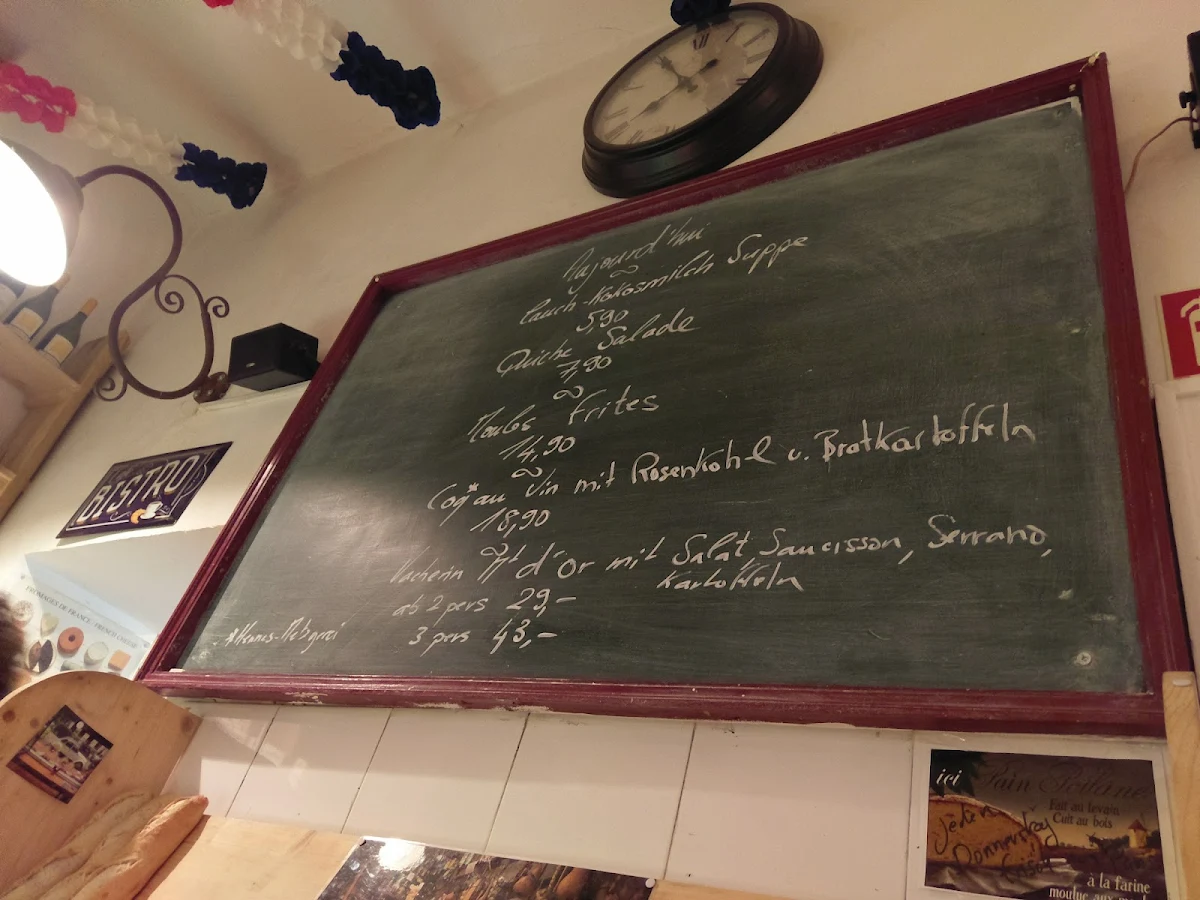 Aujourd'hui
Lauch-Kokosmilch Suppe
5,90
Quiche Salade
7,90
Moules Frites
14,90
Coq*au Vin mit Rosenkohl u. Bratkartoffeln
18,90
Vacherin Mt d'Or mit Salat, Saucisson, Serrano,
Kartoffeln
ab 2 pers 29,-
3 pers 43,-
BISTRO
FROMAGES DE FRANCE - FRENCH CHEESE
ici Pain Poilâne
Fait au levain
Cuit au bois
jeden
Donnerstag
à la farine
moulue aux